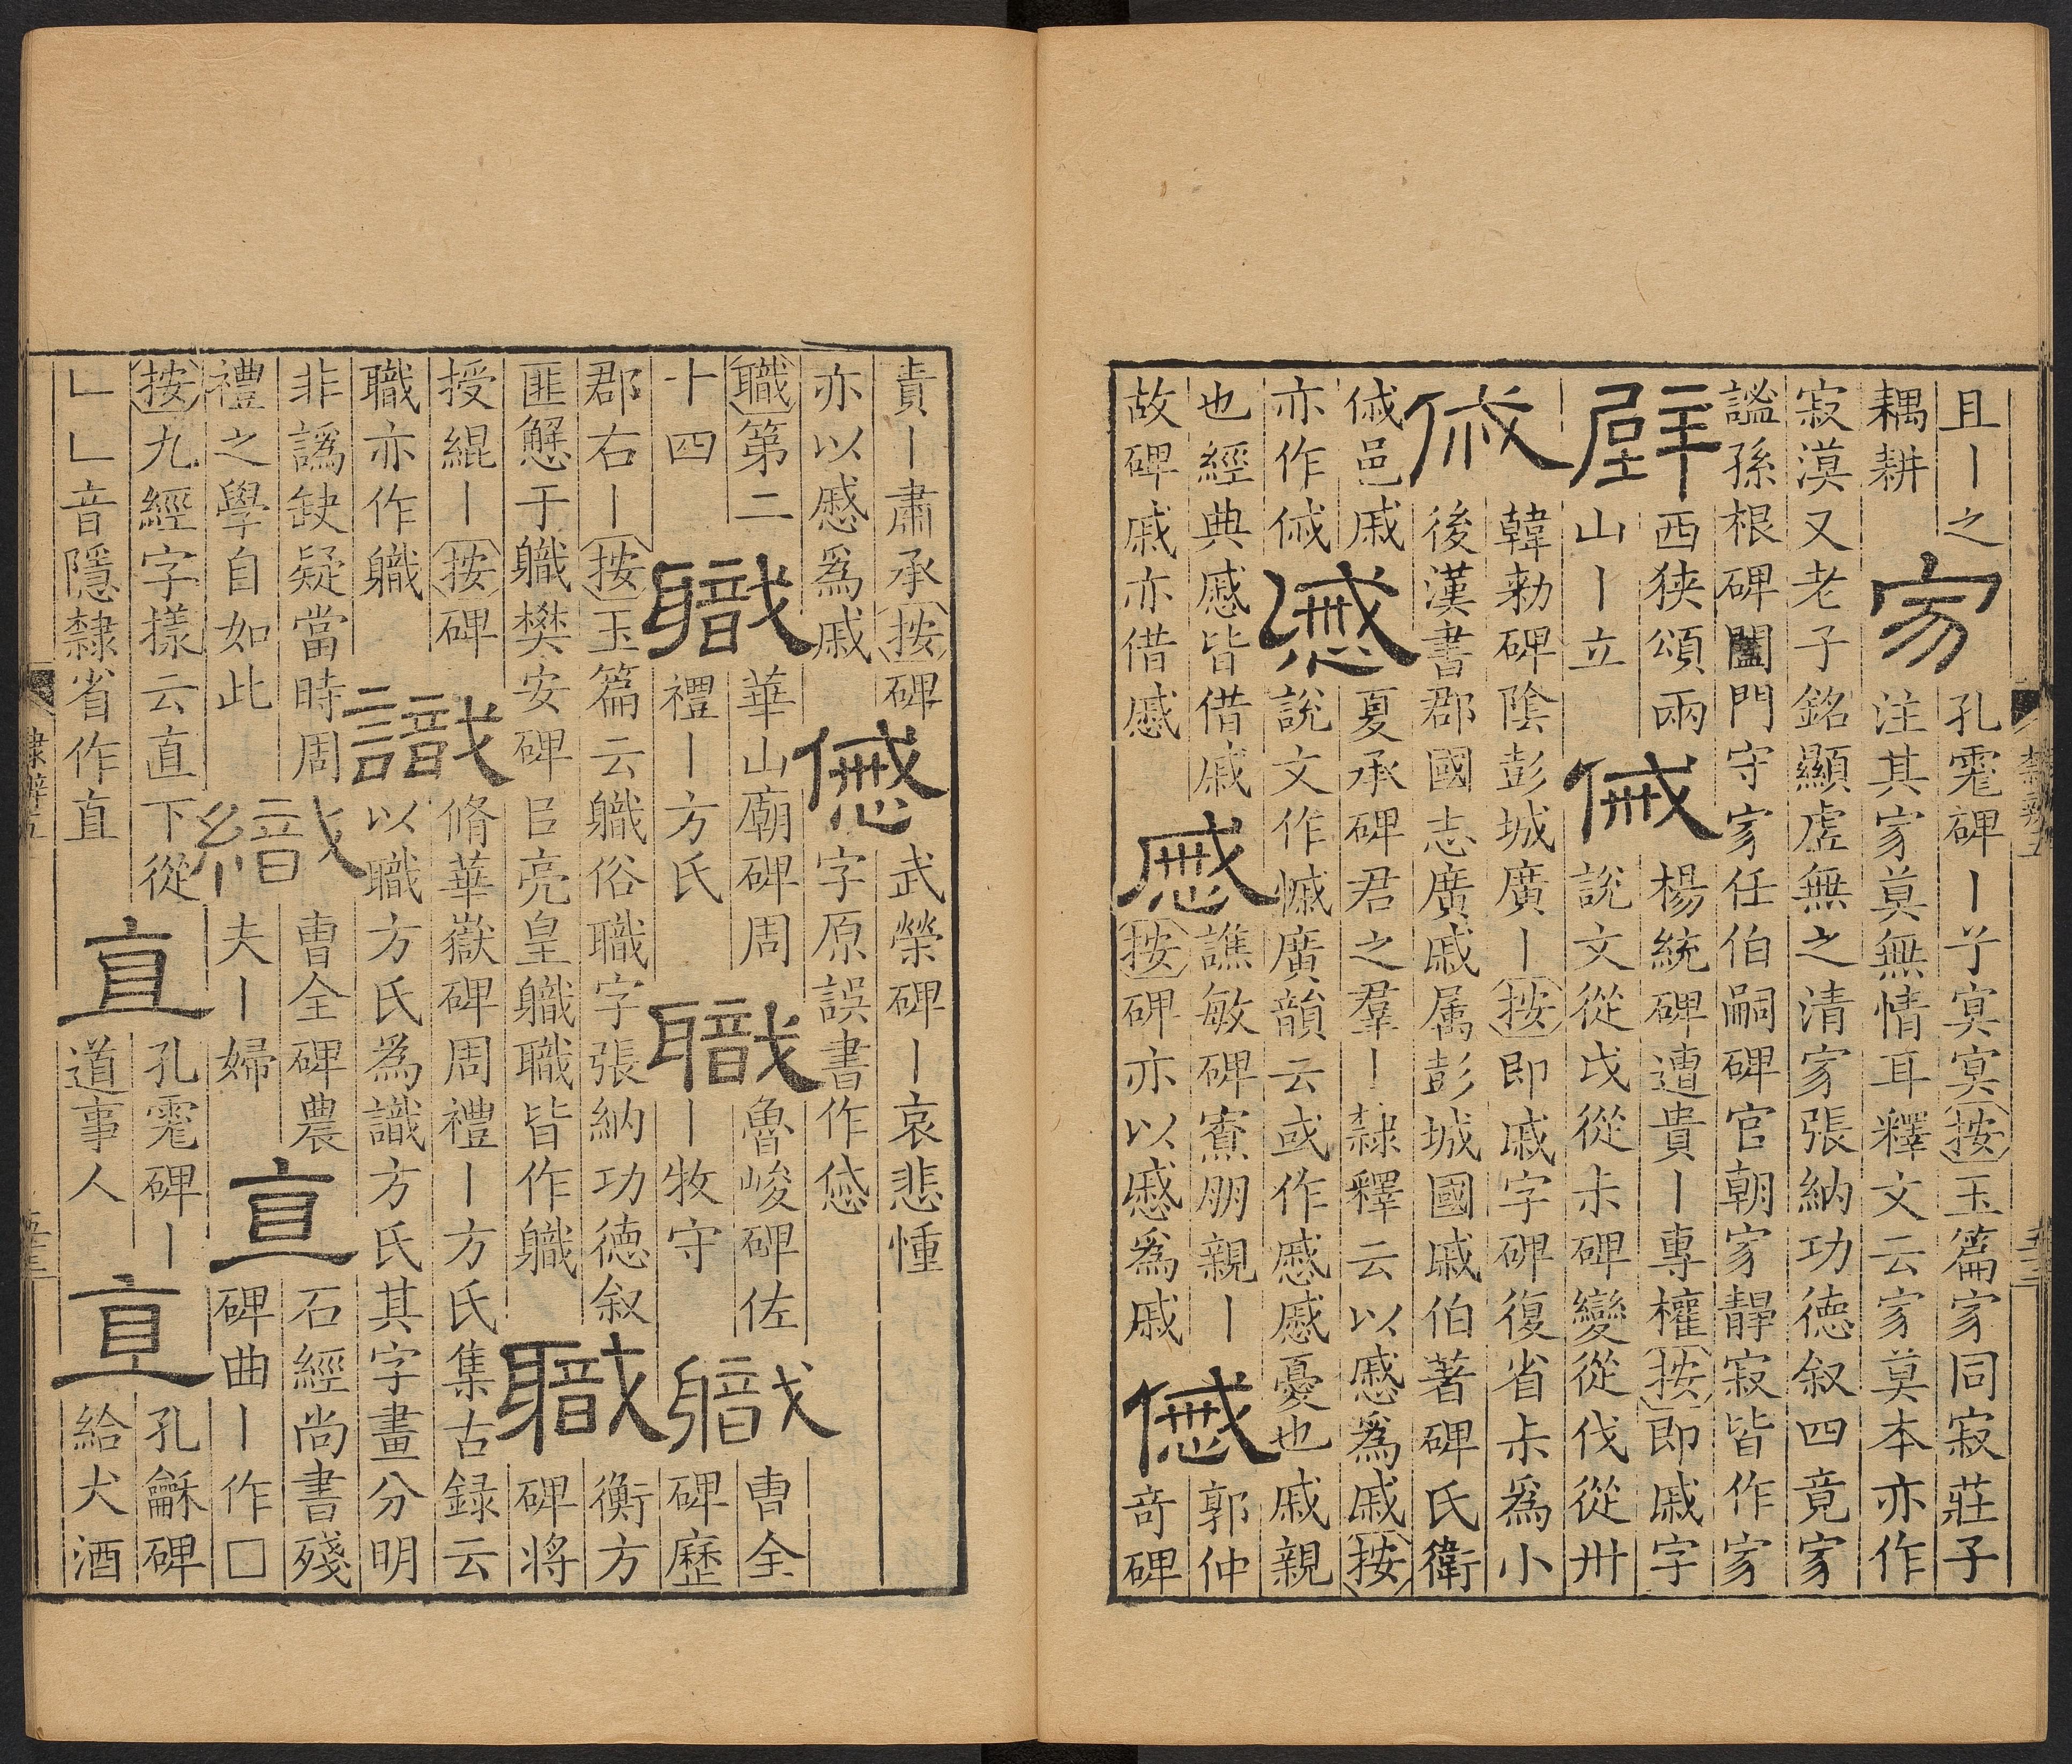 且丨之耦耕家孔彪碑丨兮冥冥按玉篇家同寂莊子注其家莫無情耳釋文云家莫本亦作
寂漠又老子銘顯虛無之清家張納功德叙四竟家謐孫根碑闔門守家任伯嗣碑官朝家靜寂皆作家
壁西狹頌兩山丨立傶楊統碑遭貴丨專權按即戚字說文從戉從尗碑變從伐從卅
俶韓勑碑陰彭城廣丨按即戚字碑復省尗爲小後漢書郡國志廣戚属彭城國戚伯著碑氏衛
傶邑戚亦作傶慼夏承碑君之羣丨隸釋云以慼爲戚按說文作慽廣韻云或作慼慼憂也戚親
也經典慼皆借戚故碑戚亦借慼慼譙敏碑寮朋親丨按碑亦以慼爲戚慼郭仲奇碑
隸辨五
五三
責丨肅承按碑亦以慼爲戚慼武榮碑丨哀悲慟字原誤書作
職第二十四軄華山廟碑周禮丨方氏職魯峻碑佐丨牧守軄曹全碑歷
郡右丨按玉篇云軄俗職字張納功德叙匪懈于軄樊安碑臣亮皇軄職皆作軄職衡方碑將
授緄丨按碑職亦作軄識脩華嶽碑周禮丨方氏集古録云以職方氏爲識方氏其字畫分明
非譌缺疑當時周禮之學自如此織曹全碑農夫丨婦直石經尚書殘碑曲丨作□
按九經字㨾云直下從乚乚音隱隸省作直直孔彪碑丨道事人直孔龢碑給犬酒
隸辨五
五三